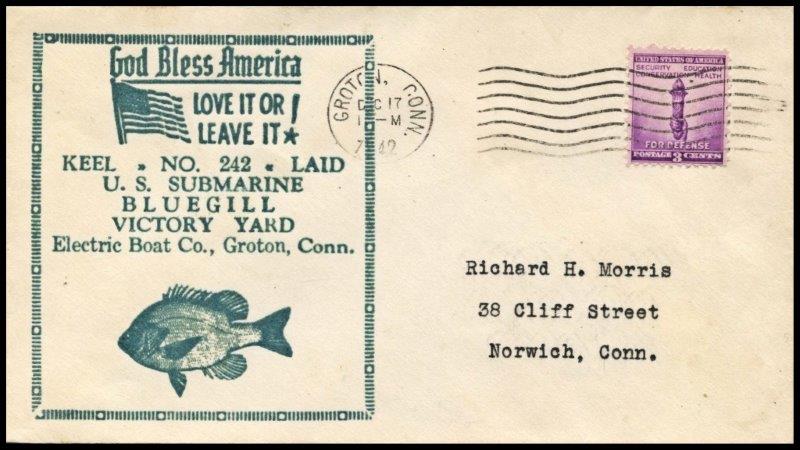 God Bless America
LOVE IT OR
LEAVE IT!
KEEL » NO. 242 « LAID
U. S. SUBMARINE
BLUEGILL
VICTORY YARD
Electric Boat Co., Groton, Conn.
GROTON, CONN.
DEC 17
1942
UNITED STATES OF AMERICA
SECURITY EDUCATION
CONSERVATION HEALTH
FOR DEFENSE
POSTAGE 3 CENTS
Richard H. Morris
38 Cliff Street
Norwich, Conn.